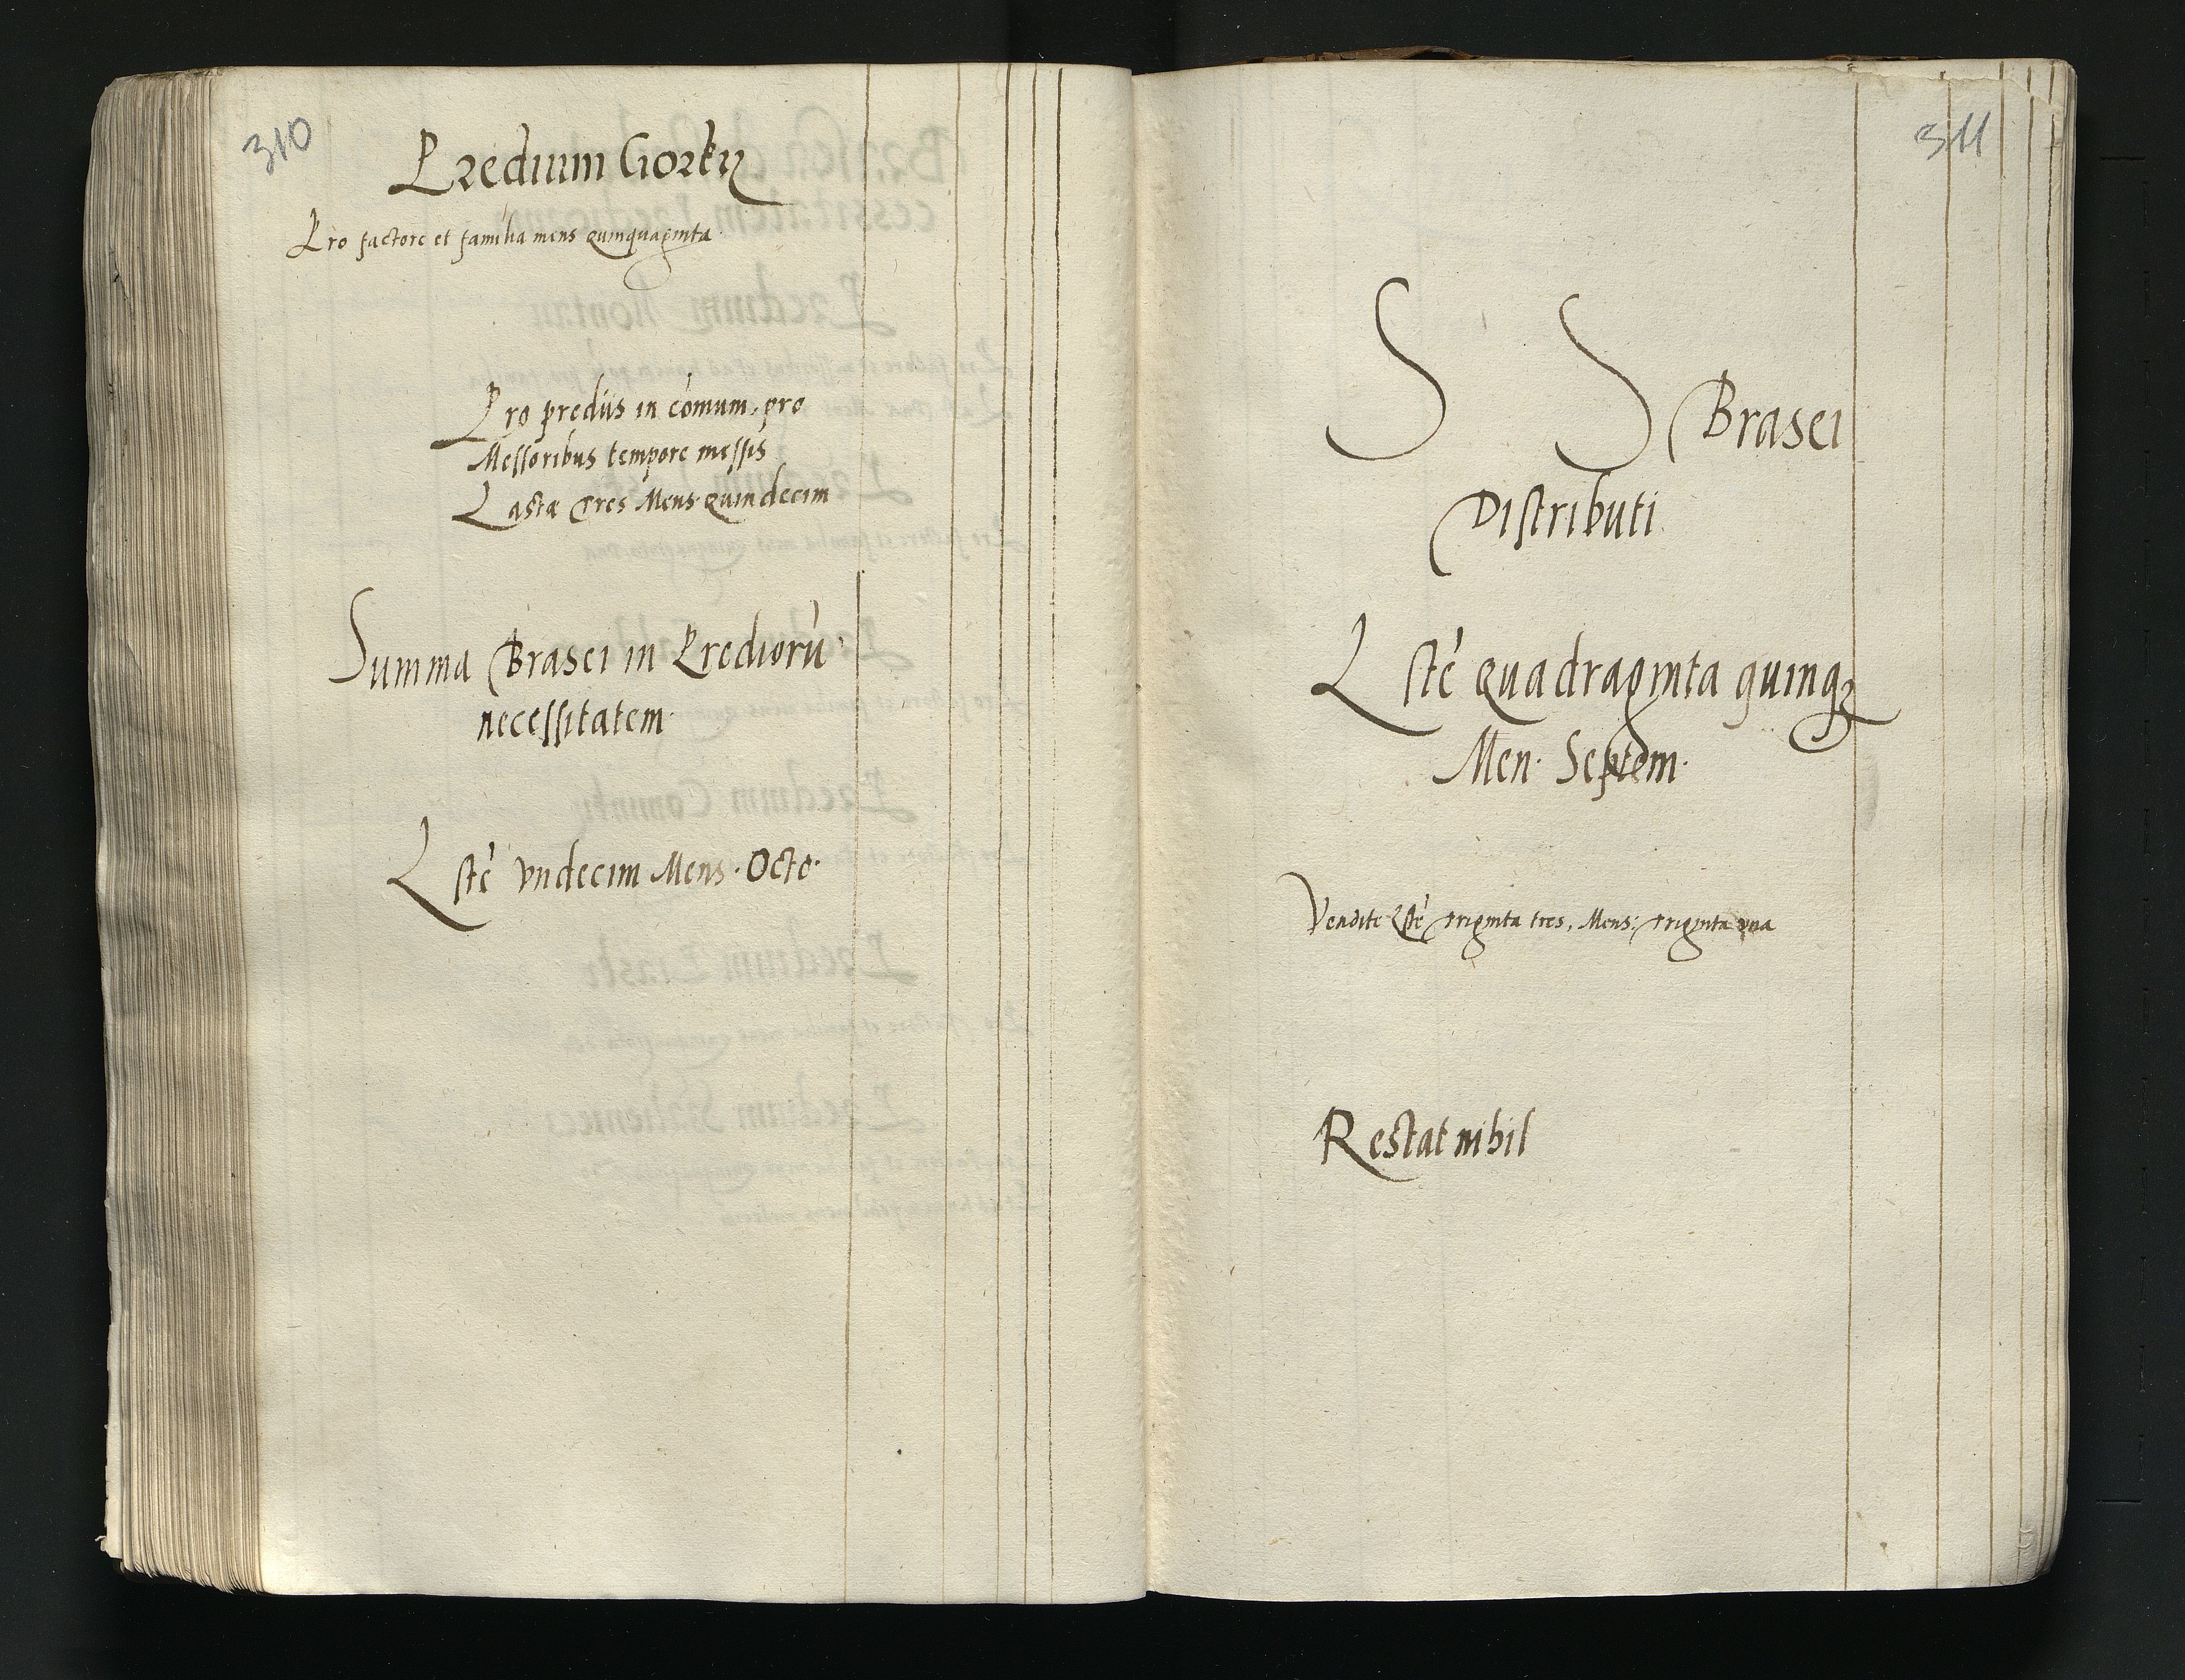 310
Predium Gorky
Pro factore et familia mens quinquaginta
Pro predijs in comum, pro
Messoribus tempore messis
Lastæ Tres Mens quindecim
Summa Brasei in Predioru
necessitatem
Lste vndecim Mens. Octo.
311
S S Brasei
Distributi
Lste quadraginta quinq3
Men. Septem.
Vendite Lste triginta tres, Mens: triginta vna
Restat nihil